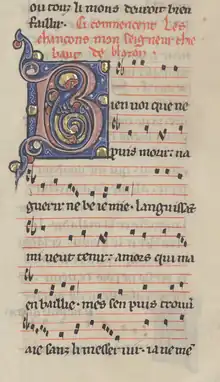 ou tout li mons devroit bien
faillir.
Ci commencent les
chançons mon seigneur thie
baut de blazon.
Bien voi que ne
puis morir. na
guerir ne be ie mie. languissāt
mi veut tenir. amors qui ma
en baillie. mes sen puis trouū
aie sanz li messer uir. ia ne mē